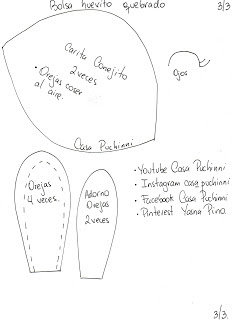 Bolsa huevito quebrado
3/3
Carita Conejito
2 veces.
• Orejas coser
al aire.
Ojos
Casa Puchinni
Orejas
4 veces.
Adorno
Orejas
2 veces
• Youtube Casa Puchinni
• Instagram casa puchinni
• Facebook Casa Puchinni
• Pinterest Yasna Pino.
3/3.